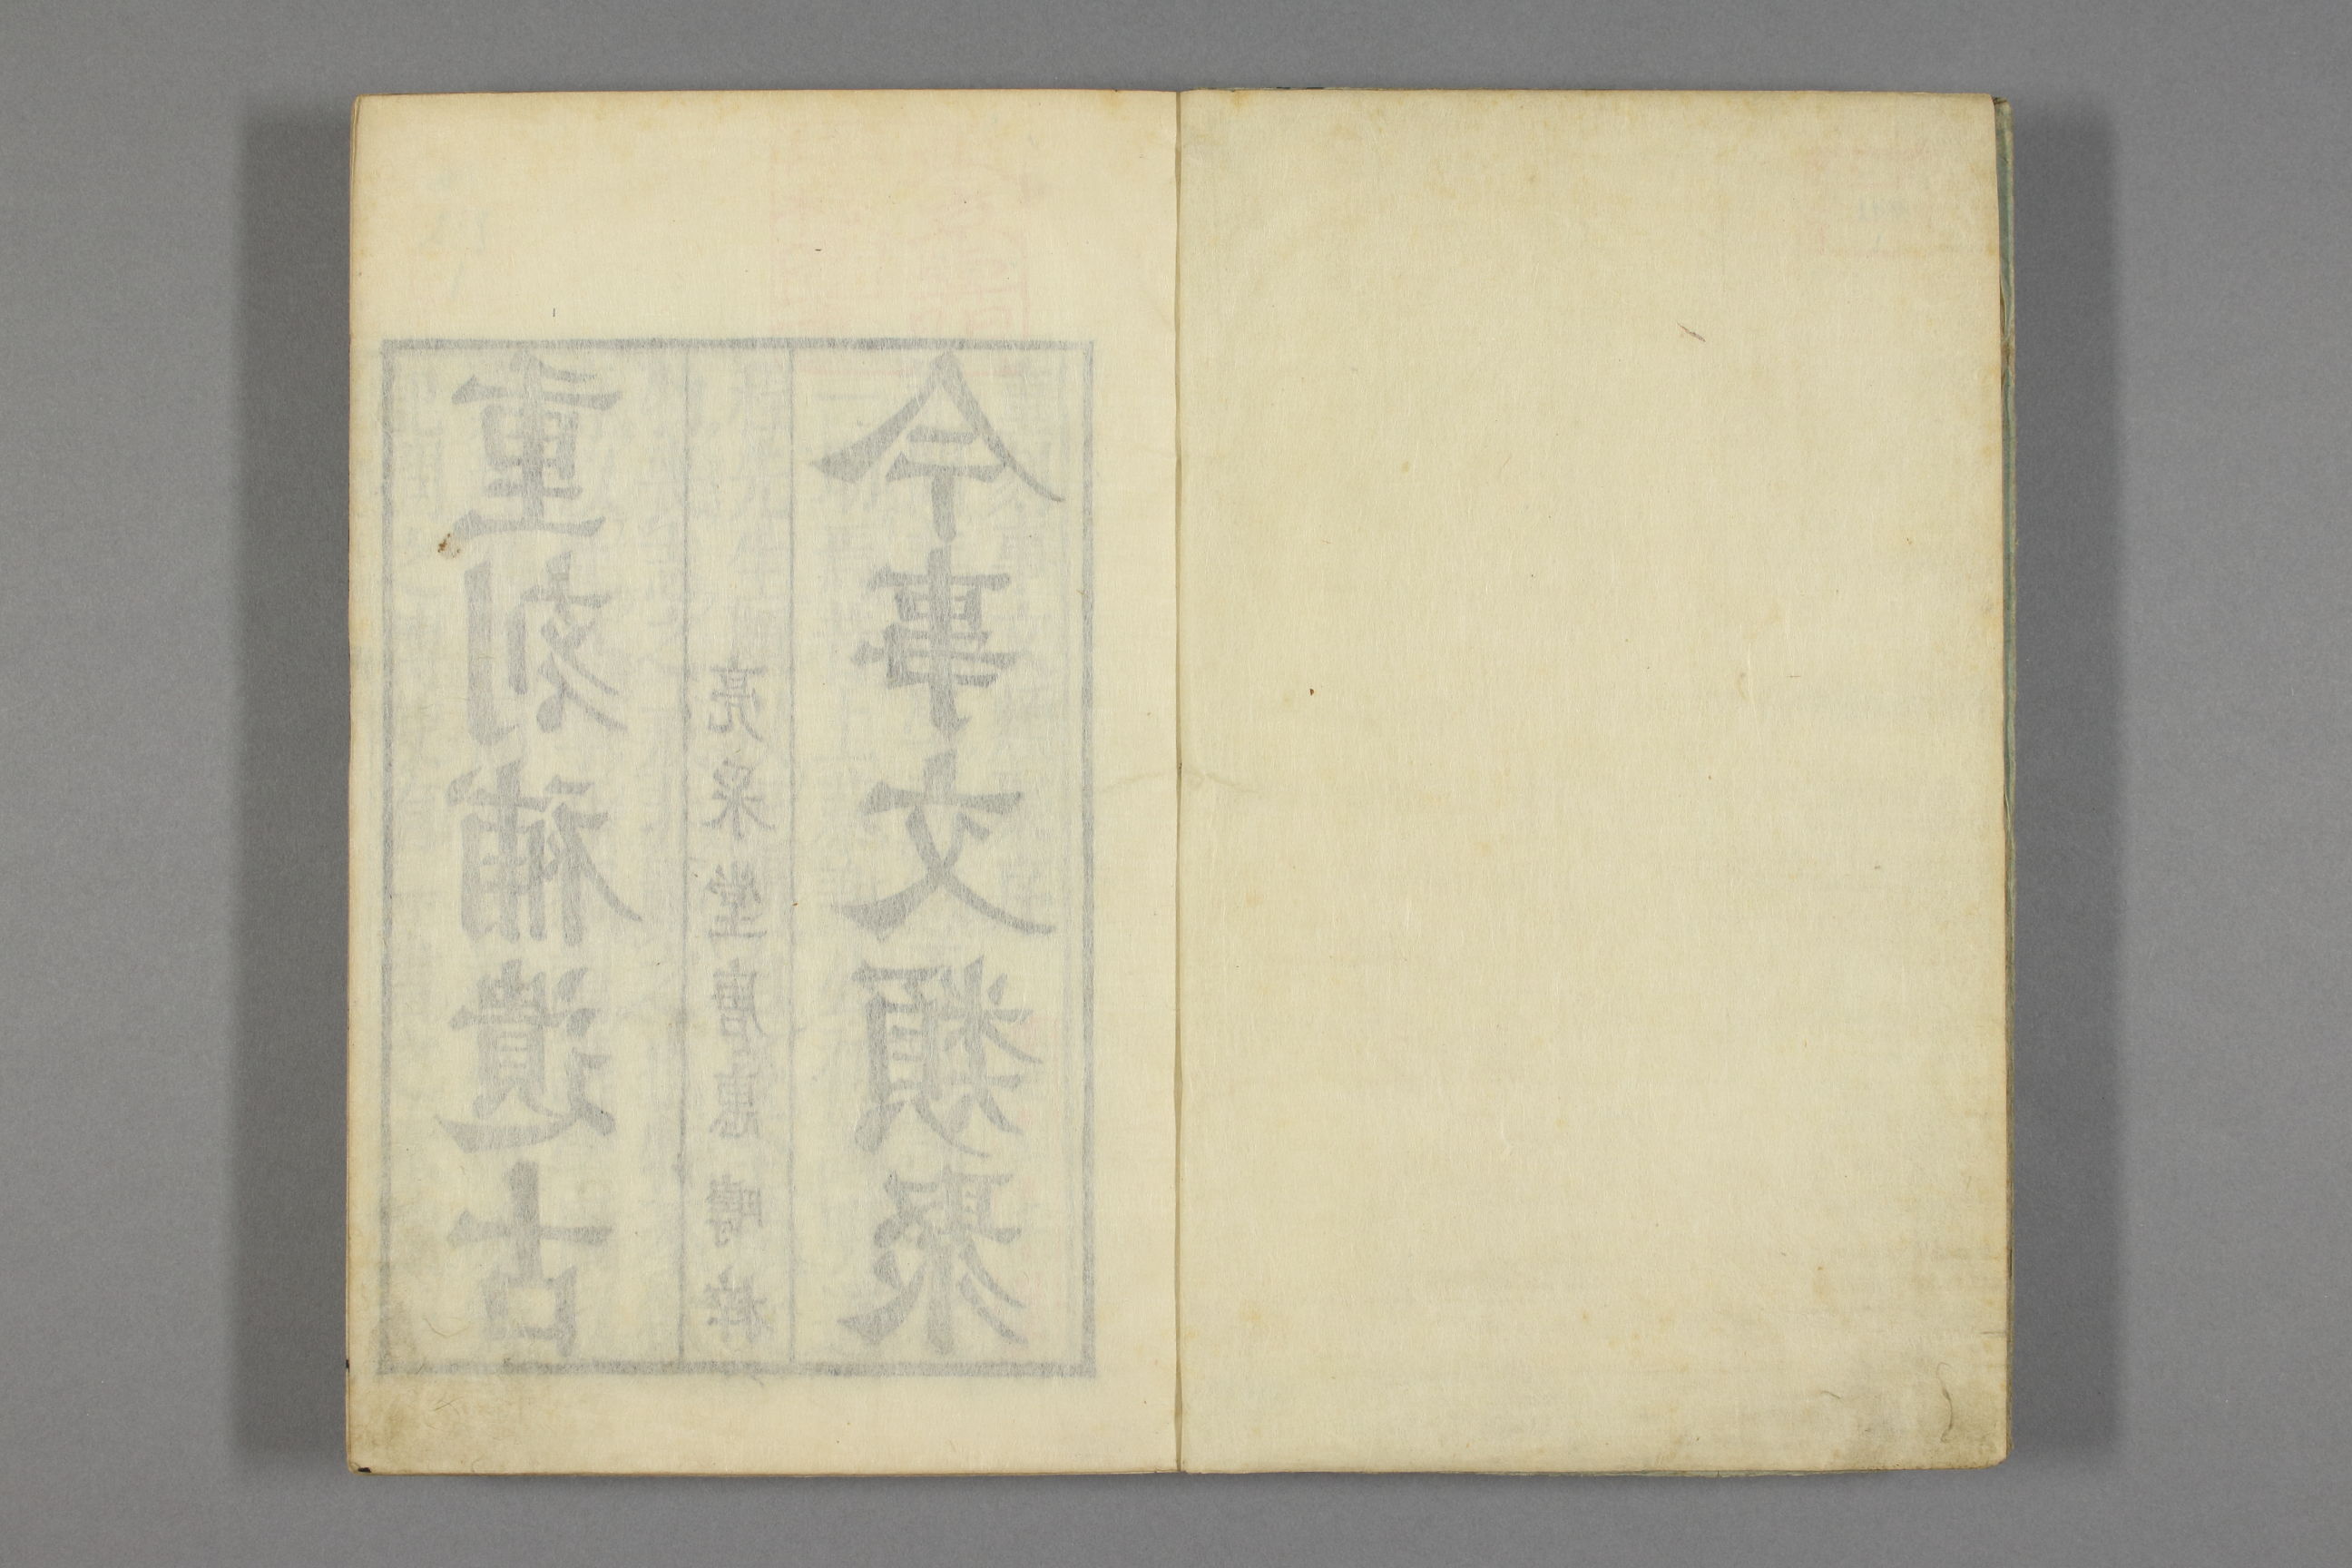 重刻補遺古
亮采堂唐惠疇梓
今事文類聚